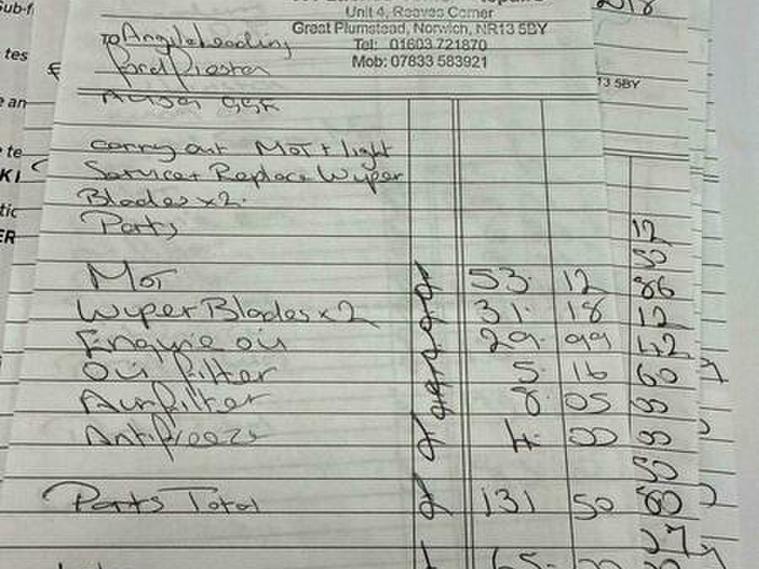 Unit 4, Reeves Corner
Great Plumstead, Norwich, NR13 5BY
Tel: 01603 721870
Mob: 07833 583921
To Angie
Ford Fiesta
Carry out Mot + light
Service + Replace Wyper
Blades x 2.
Parts
Mot £ 53. 12
Wyper Blades x 2 £ 31. 18
Engine oil £ 29. 99
Oil filter £ 5. 16
Air filter £ 8. 05
Antifreeze £ 4. 00
Parts Total £ 131 50
65.
13 5BY
12
50
86
12
42
60
00
00
50
80
27
Sub-f
tes
e an
te
KI
tic
ER